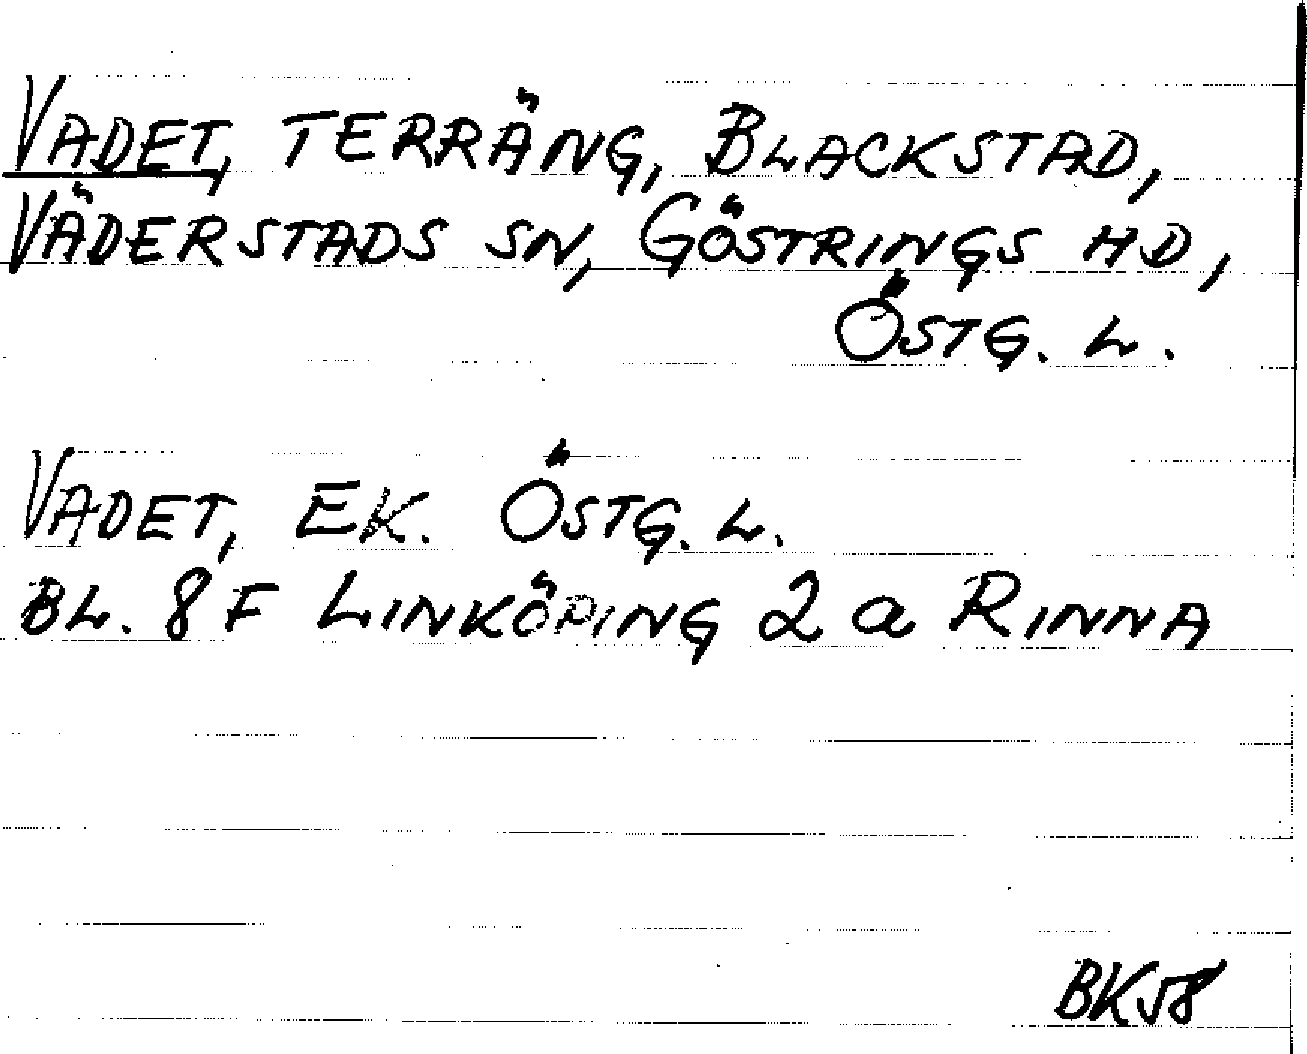 VADET, TERRÄNG, BLACKSTAD,
VÄDERSTADS SN, GÖSTRINGS HD,
ÖSTG. L.
VADET, EK. ÖSTG. L.
BL. 8F LINKÖPING 2a RINNA
BK58